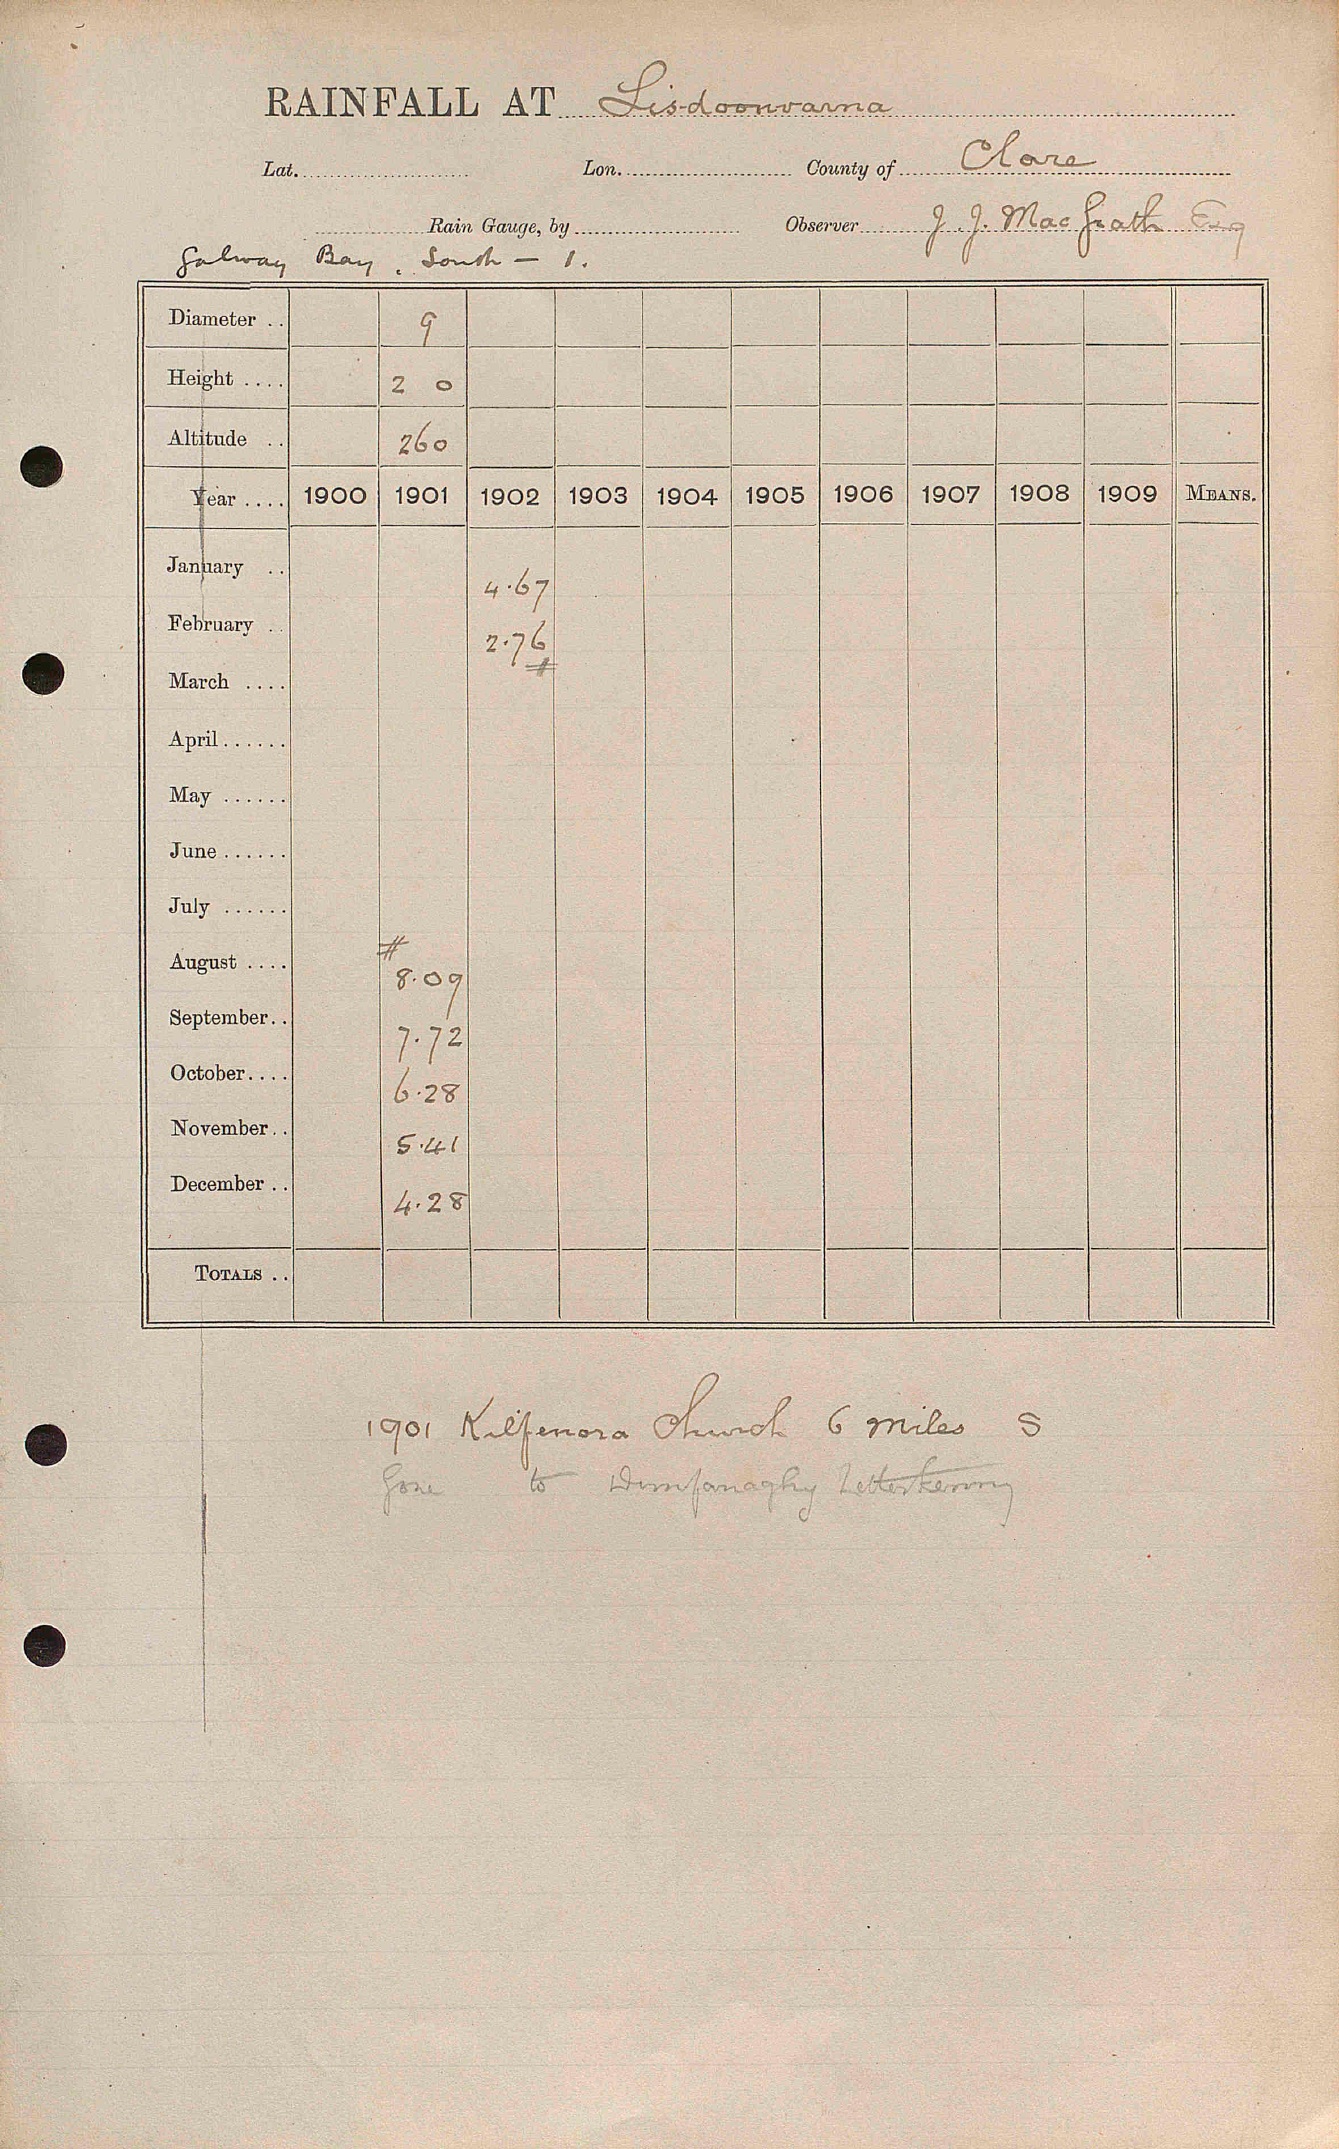 RAINFALL AT Lisdoonvarna
Lat. Lon. County of Clare
Rain Gauge, by Observer J. J. MacGrath Esq
Galway Bay, South — 1.
Diameter .. 9
Height .... 2 0
Altitude .. 260
Year .... 1900 1901 1902 1903 1904 1905 1906 1907 1908 1909 MEANS.
January .. 4.67
February .. 2.76
#
March ....
April ......
May ......
June ......
July ......
#
August .... 8.09
September.. 7.72
October.... 6.28
November.. 5.41
December .. 4.28
TOTALS ..
1901 Kilfenora Church 6 miles S
Gone to Dunfanaghy Letterkenny